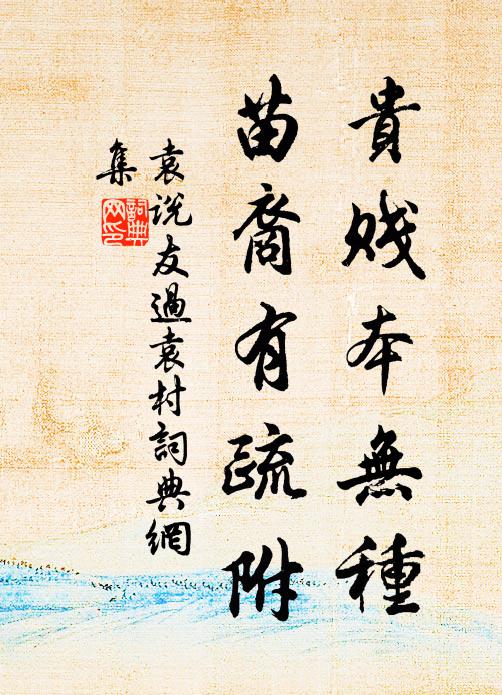 貴賤本無種
苗裔有疏附
袁說友過袁村詞典網
集
詞典
网印